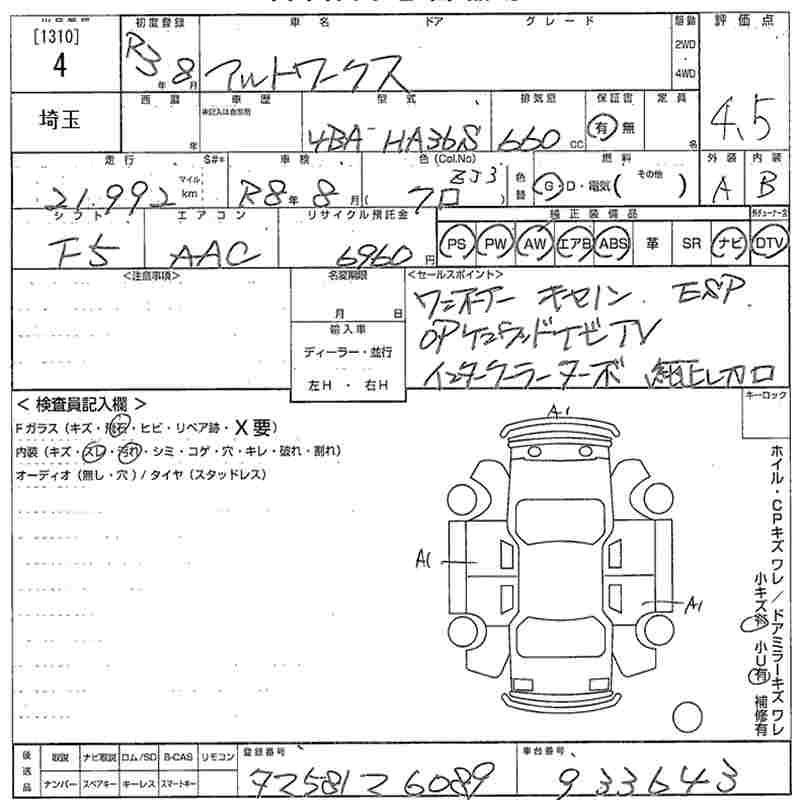 [1310]
4
埼玉
初度登録
R3 年 8 月
車名
ドア
グレード
アルトワークス
駆動
2WD
4WD
評価点
4.5
西暦
年
車歴
未記入は自家用
型式
4BA-HA36S
排気量
660 cc
保証書
有 無
定員
名
走行
21,992
マイル
km
S#*
車検
R8 年 8 月
色(Col.No)
( クロ ZJ3 )
色替
燃料
G・D・電気( その他 )
外装
A
内装
B
シフト
F5
エアコン
AAC
リサイクル預託金
6960 円
純正装備品
PS PW AW エアB ABS 革 SR ナビ
DTV
<注意事項>
名変期限
月 日
輸入車
ディーラー・並行
左H ・ 右H
<セールスポイント>
ワンオーナー キセノン ESP
インタークーラーターボ 純正レカロ
< 検査員記入欄 >
Fガラス(キズ・飛石・ヒビ・リペア跡・X要)
内装(キズ・スレ・汚れ・シミ・コゲ・穴・キレ・破れ・割れ)
オーディオ(無し・穴)/タイヤ(スタッドレス)
キーロック
A1
A1
A1
ホイル・CPキズワレ/ドアミラーキズワレ
小キズ 小U有 補修有
後送品
取説 ナビ取説 ロム/SD B-CAS リモコン
ナンバー スペアキー キーレス スマートキー
登録番号
7258126089
車台番号
933643